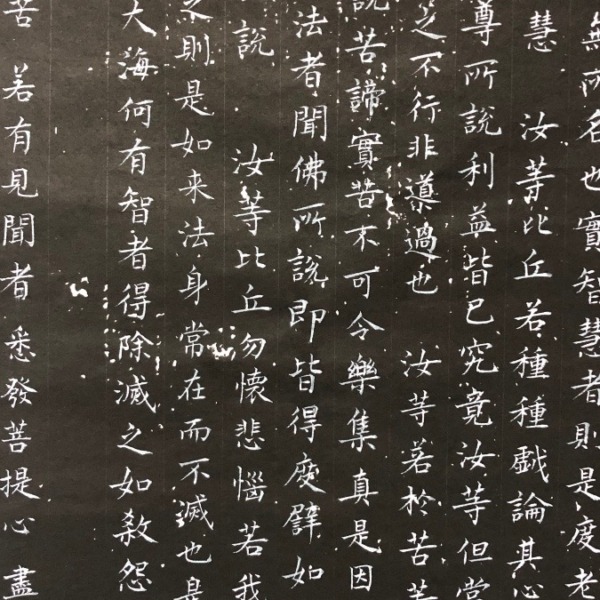 無所名也實智慧者則是度老
慧 汝等比丘若種種戲論其心
尊所說利益皆已究竟汝等但當
之不行非導過也 汝等若於苦等
說苦諦實苦不可令樂集真是因
法者聞佛所說即皆得度譬如
說 汝等比丘勿懷悲惱若我
之則是如来法身常在而不滅也是
大海何有智者得除滅之如殺怨
苦 若有見聞者悉發菩提心 盡